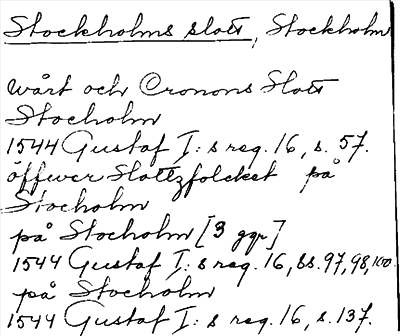 Stockholms slott, Stockholm
wårt och Cronons Slott
Stocholm
1544 Gustaf I:s reg. 16, s. 57.
öffwer Slottzfolcket på
Stocholm
på Stocholm [3 ggr]
1544 Gustaf I:s reg. 16, ss. 97, 98, 100.
på Stocholm
1544 Gustaf I:s reg. 16, s. 137.